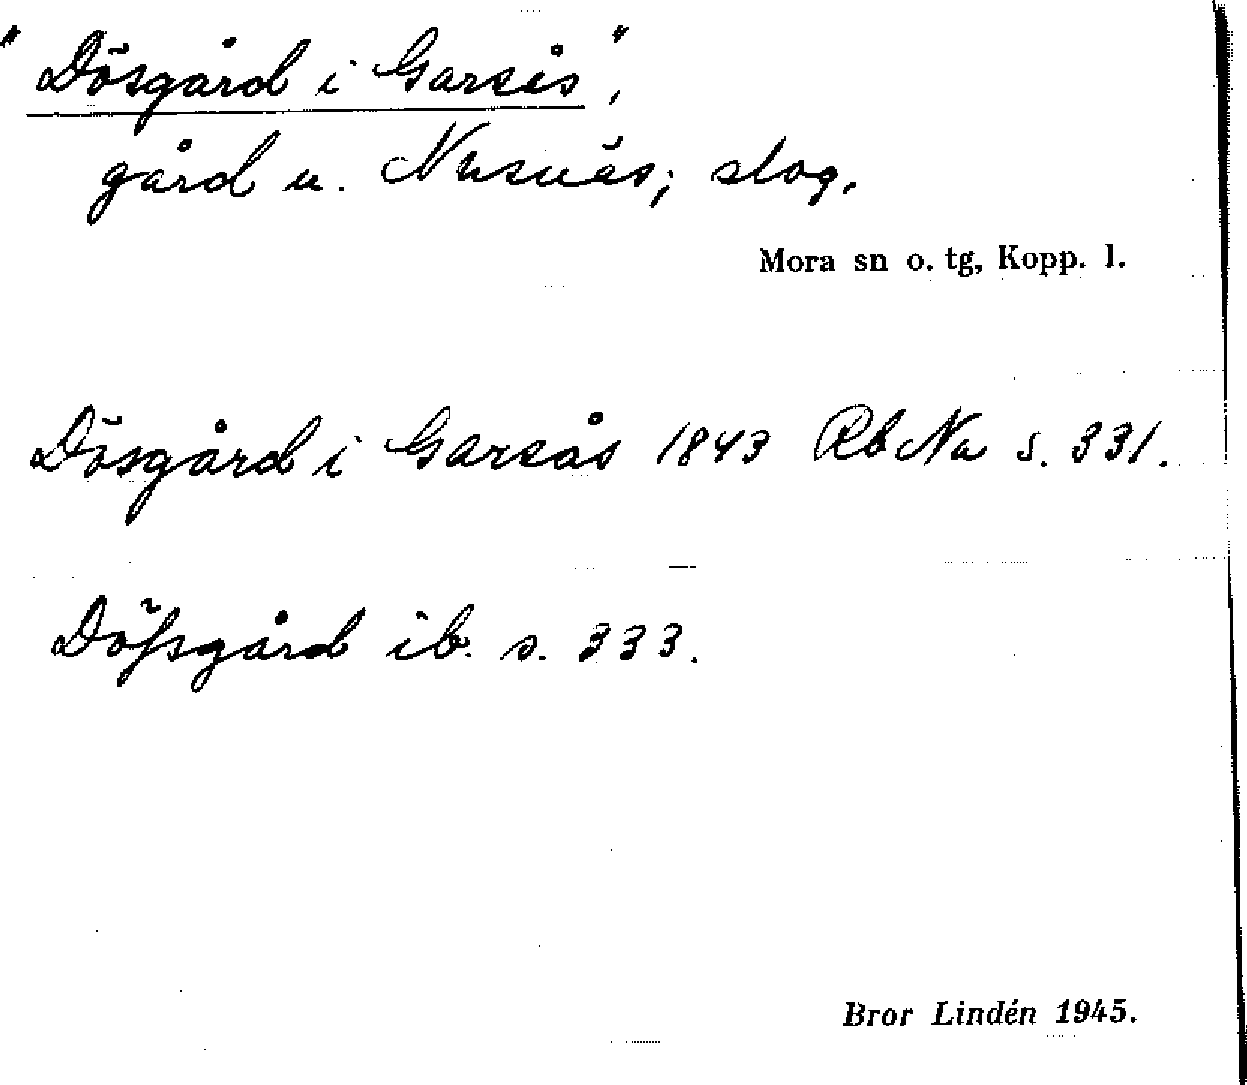 "Dösgård i Garsås",
gård u. Nusnäs; slog.
Mora sn o. tg, Kopp. l.
Dösgård i Garsås 1843 Rb Nu s. 331.
Döfsgård ib. s. 333.
Bror Lindén 1945.